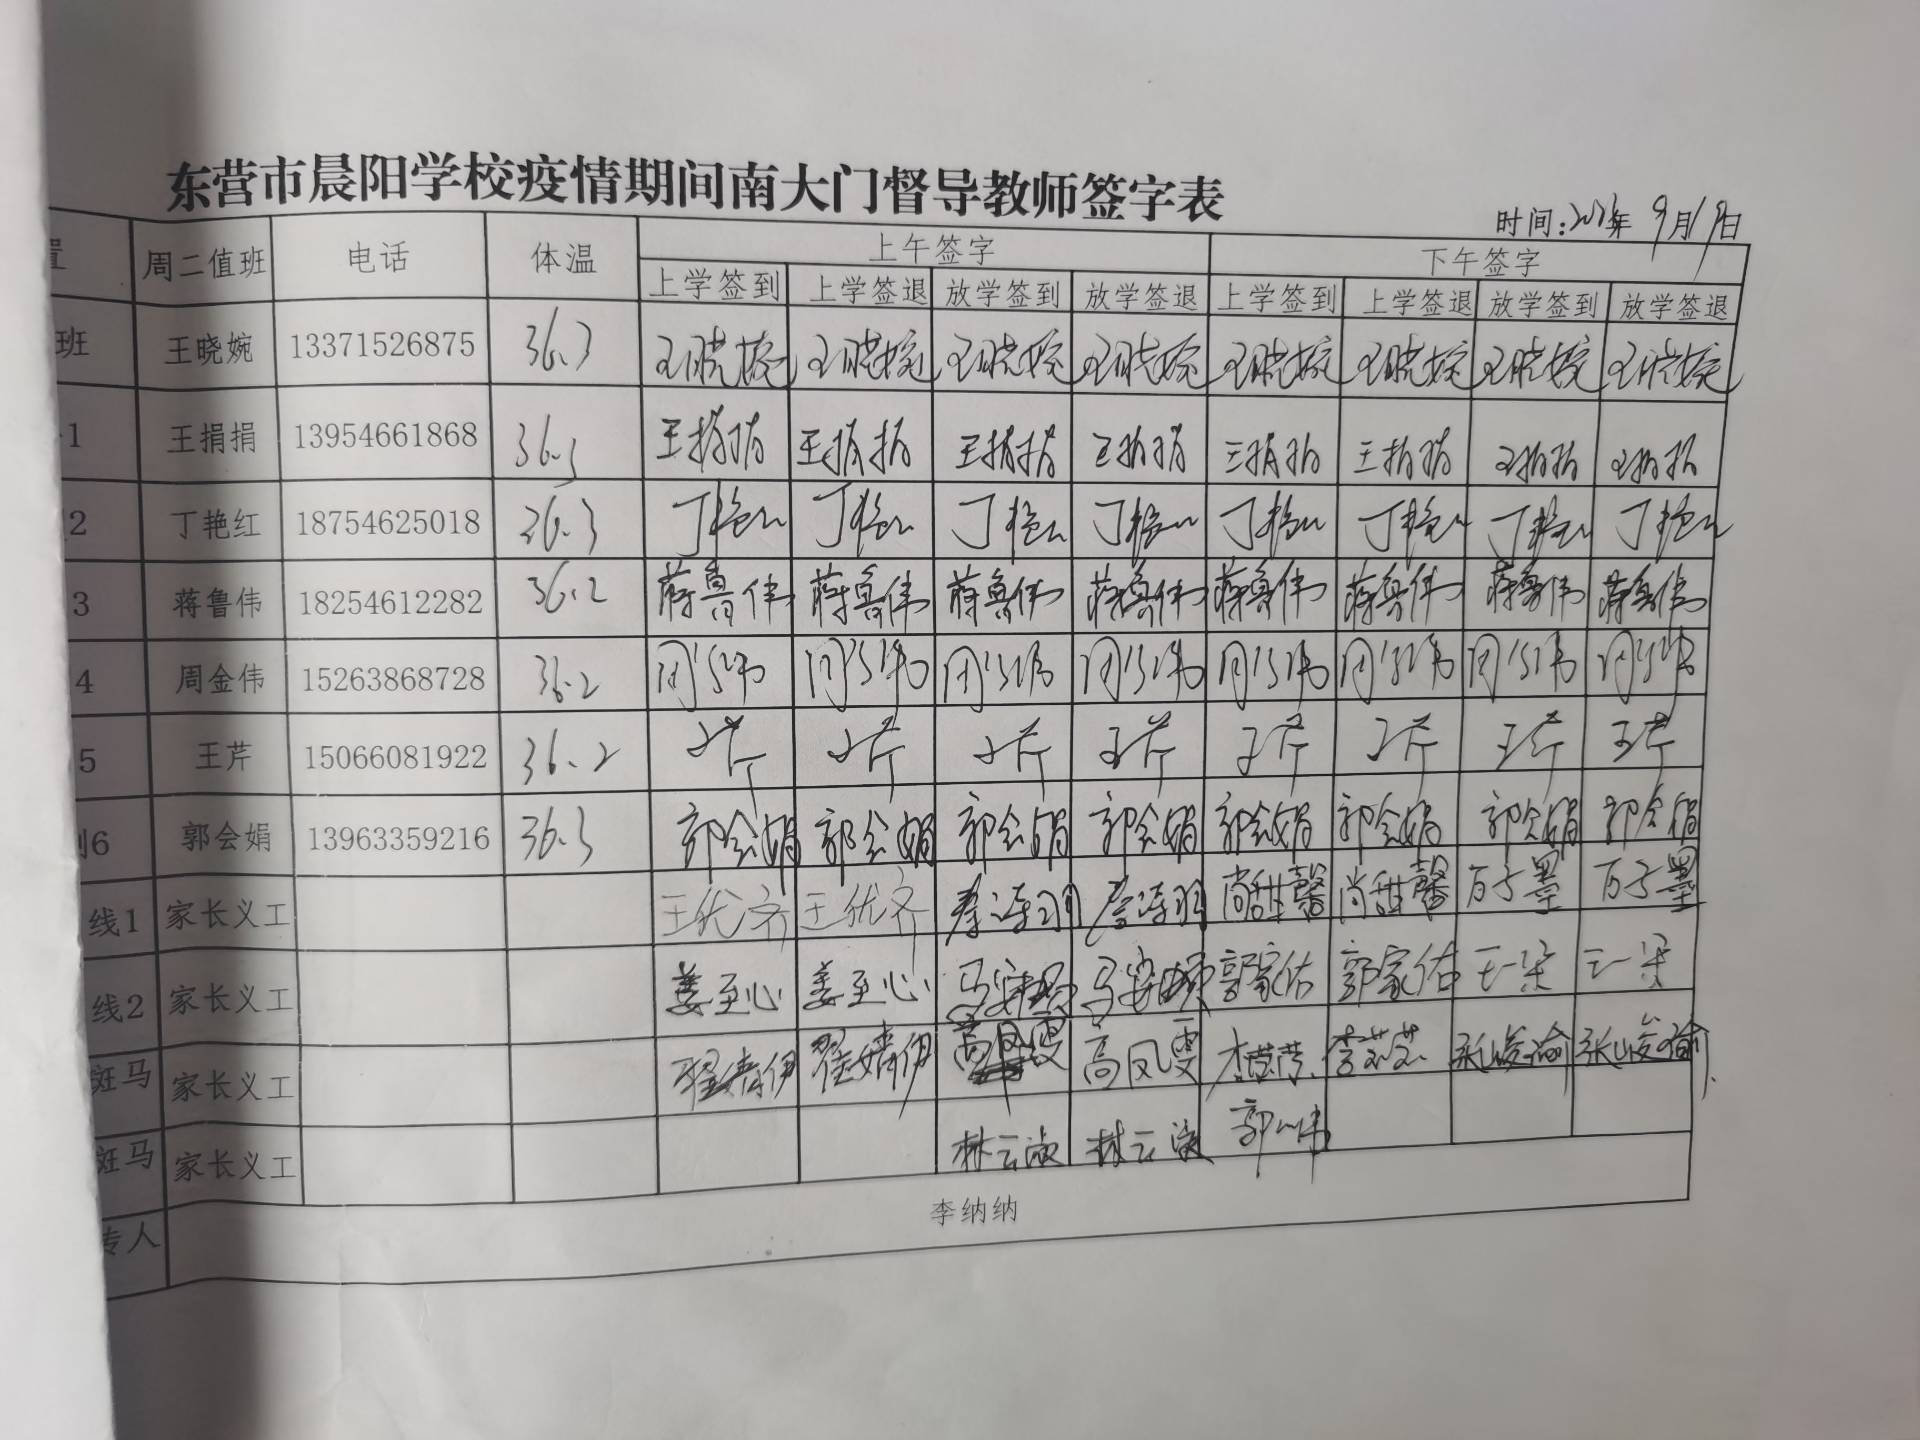 东营市晨阳学校疫情期间南大门督导教师签字表
时间: 年 9月 日
置 周二值班 电话 体温 上午签字 下午签字
上学签到 上学签退 放学签到 放学签退 上学签到 上学签退 放学签到 放学签退
班 王晓婉 13371526875 36.3 王晓婉 王晓婉 王晓婉 王晓婉 王晓婉 王晓婉 王晓婉 王晓婉
1 王捐捐 13954661868 36.3 王捐捐 王捐捐 王捐捐 王捐捐 王捐捐 王捐捐 王捐捐 王捐捐
2 丁艳红 18754625018 36.3 丁艳红 丁艳红 丁艳红 丁艳红 丁艳红 丁艳红 丁艳红 丁艳红
3 蒋鲁伟 18254612282 36.2 蒋鲁伟 蒋鲁伟 蒋鲁伟 蒋鲁伟 蒋鲁伟 蒋鲁伟 蒋鲁伟 蒋鲁伟
4 周金伟 15263868728 36.2 周金伟 周金伟 周金伟 周金伟 周金伟 周金伟 周金伟 周金伟
5 王芹 15066081922 36.2 王芹 王芹 王芹 王芹 王芹 王芹 王芹 王芹
刂6 郭会娟 13963359216 36.3 郭会娟 郭会娟 郭会娟 郭会娟 郭会娟 郭会娟 郭会娟 郭会娟
线1 家长义工 王优齐 王优齐 尚甜馨 尚甜馨 万子墨 万子墨
线2 家长义工 姜至心 姜至心 郭家佑 郭家佑 王一梁 王一梁
斑马 家长义工 翟婧伊 翟婧伊 高凤雯 高凤雯 张峻瑜 张峻瑜
斑马 家长义工 林云淑 林云淑
专人 李纳纳